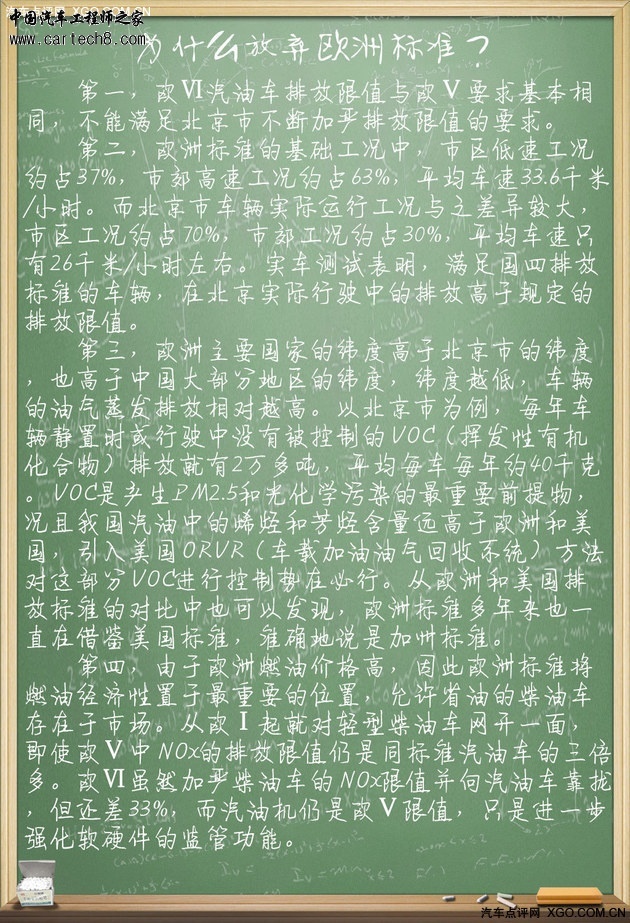 中国汽车工程师之家
www.cartech8.com
为什么放弃欧洲标准？
第一，欧Ⅵ汽油车排放限值与欧Ⅴ要求基本相
同，不能满足北京市不断加严排放限值的要求。
第二，欧洲标准的基础工况中，市区低速工况
约占37%，市郊高速工况约占63%，平均车速33.6千米
/小时。而北京市车辆实际运行工况与之差异较大，
市区工况约占70%，市郊工况约占30%，平均车速只
有26千米/小时左右。实车测试表明，满足国四排放
标准的车辆，在北京实际行驶中的排放高于规定的
排放限值。
第三，欧洲主要国家的纬度高于北京市的纬度
，也高于中国大部分地区的纬度，纬度越低，车辆
的油气蒸发排放相对越高。以北京市为例，每年车
辆静置时或行驶中没有被控制的VOC（挥发性有机
化合物）排放就有2万多吨，平均每车每年约40千克
。VOC是产生PM2.5和光化学污染的最重要前提物，
况且我国汽油中的烯烃和芳烃含量远高于欧洲和美
国，引入美国ORVR（车载加油油气回收系统）方法
对这部分VOC进行控制势在必行。从欧洲和美国排
放标准的对比中也可以发现，欧洲标准多年来也一
直在借鉴美国标准，准确地说是加州标准。
第四，由于欧洲燃油价格高，因此欧洲标准将
燃油经济性置于最重要的位置，允许省油的柴油车
存在于市场。从欧Ⅰ起就对轻型柴油车网开一面，
即使欧Ⅴ中NOx的排放限值仍是同标准汽油车的三倍
多。欧Ⅵ虽然加严柴油车的NOx限值并向汽油车靠拢
，但还差33%，而汽油机仍是欧Ⅴ限值，只是进一步
强化软硬件的监管功能。
汽车点评网 XGO.COM.CN